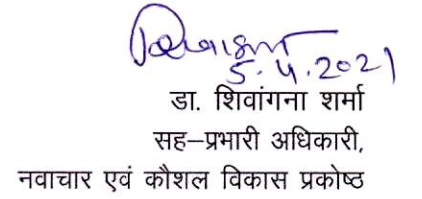 5.4.2021
डा. शिवांगना शर्मा
सह–प्रभारी अधिकारी,
नवाचार एवं कौशल विकास प्रकोष्ठ